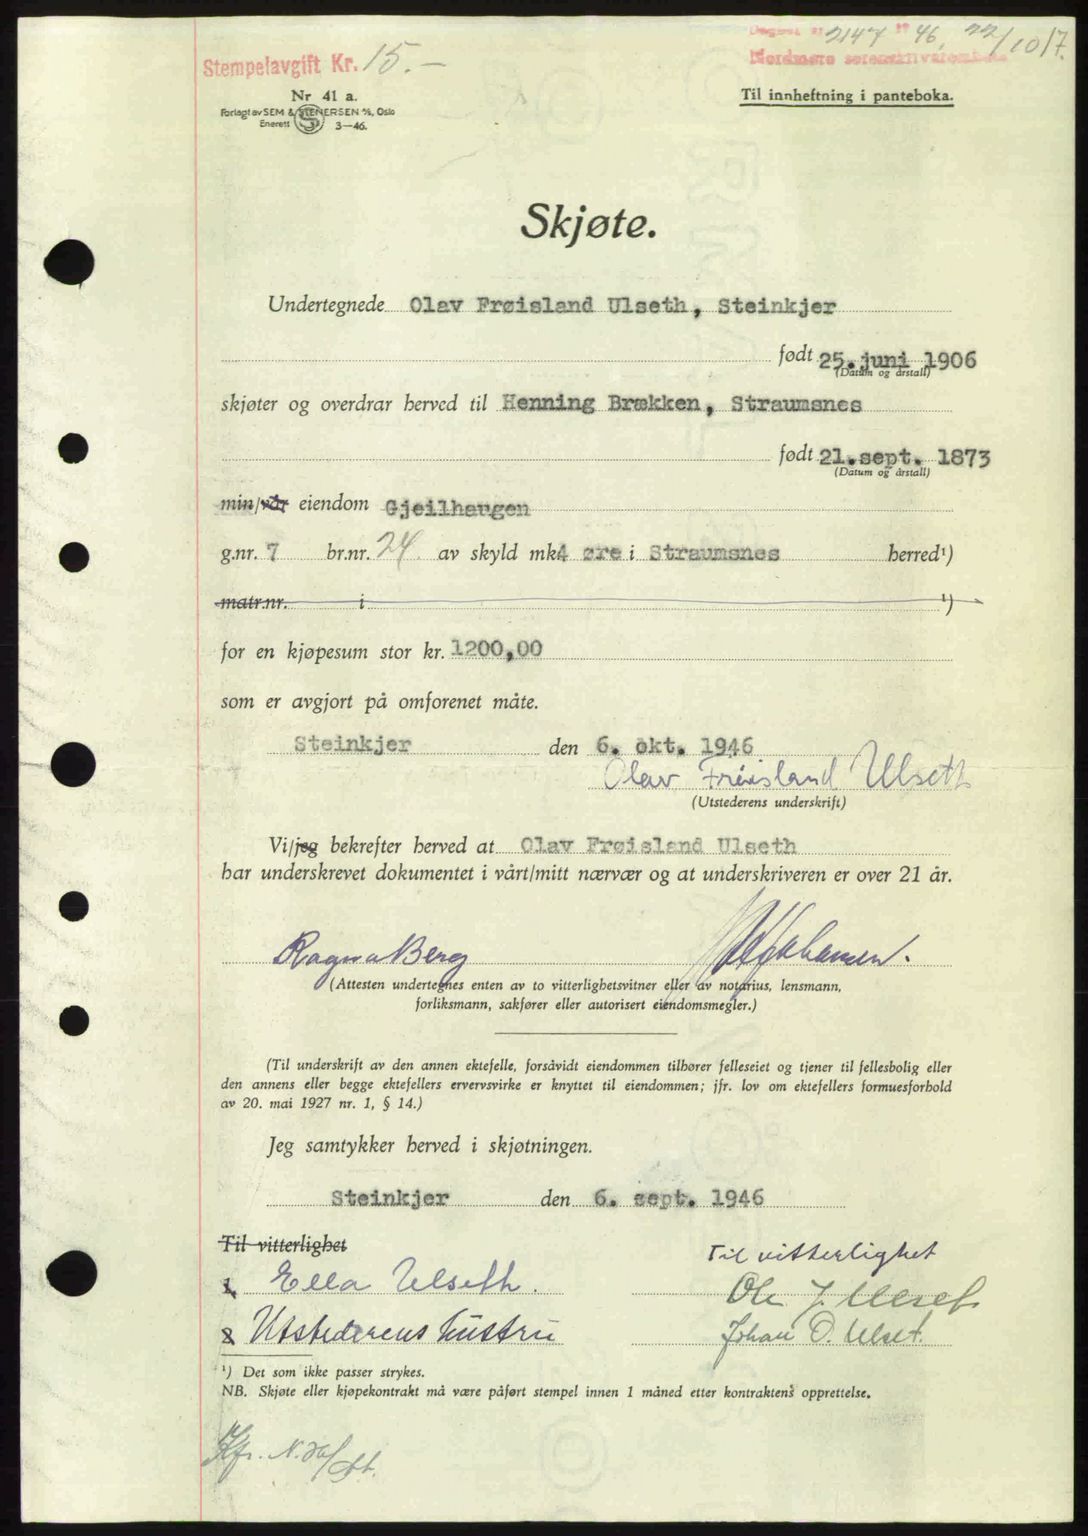 Dagbok nr 2147 19 46, 22/10 17.
Stempelavgift Kr. 15.-
Nordmøre sorenskriverembete
Nr 41 a.
Forlagt av SEM & STENERSEN A/S, Oslo
Enerett 3—46.
Til innheftning i panteboka.
Skjøte.
Undertegnede Olav Frøisland Ulseth, Steinkjer
født 25. juni 1906
(Datum og årstall)
skjøter og overdrar herved til Henning Brækken, Straumsnes
født 21. sept. 1873
(Datum og årstall)
min/vår eiendom Gjeilhaugen
g.nr. 7 br.nr. 24 av skyld mk 4 øre i Straumsnes herred¹)
matr.nr. i ¹)
for en kjøpesum stor kr. 1200,00
som er avgjort på omforenet måte.
Steinkjer den 6. okt. 1946
Olav Frøisland Ulseth
(Utstederens underskrift)
Vi/jeg bekrefter herved at Olav Frøisland Ulseth
har underskrevet dokumentet i vårt/mitt nærvær og at underskriveren er over 21 år.
Ragna Berg
(Attesten undertegnes enten av to vitterlighetsvitner eller av notarius, lensmann,
forliksmann, sakfører eller autorisert eiendomsmegler.)
(Til underskrift av den annen ektefelle, forsåvidt eiendommen tilhører felleseiet og tjener til fellesbolig eller
den annens eller begge ektefellers ervervsvirke er knyttet til eiendommen; jfr. lov om ektefellers formuesforhold
av 20. mai 1927 nr. 1, § 14.)
Jeg samtykker herved i skjøtningen.
Steinkjer den 6. sept. 1946
Til vitterlighet
Til vitterlighet
1. Ella Ulseth.
Ole J. Ulset
2 Utstederens hustru
Johan O. Ulset.
¹) Det som ikke passer strykes.
NB. Skjøte eller kjøpekontrakt må være påført stempel innen 1 måned etter kontraktens opprettelse.